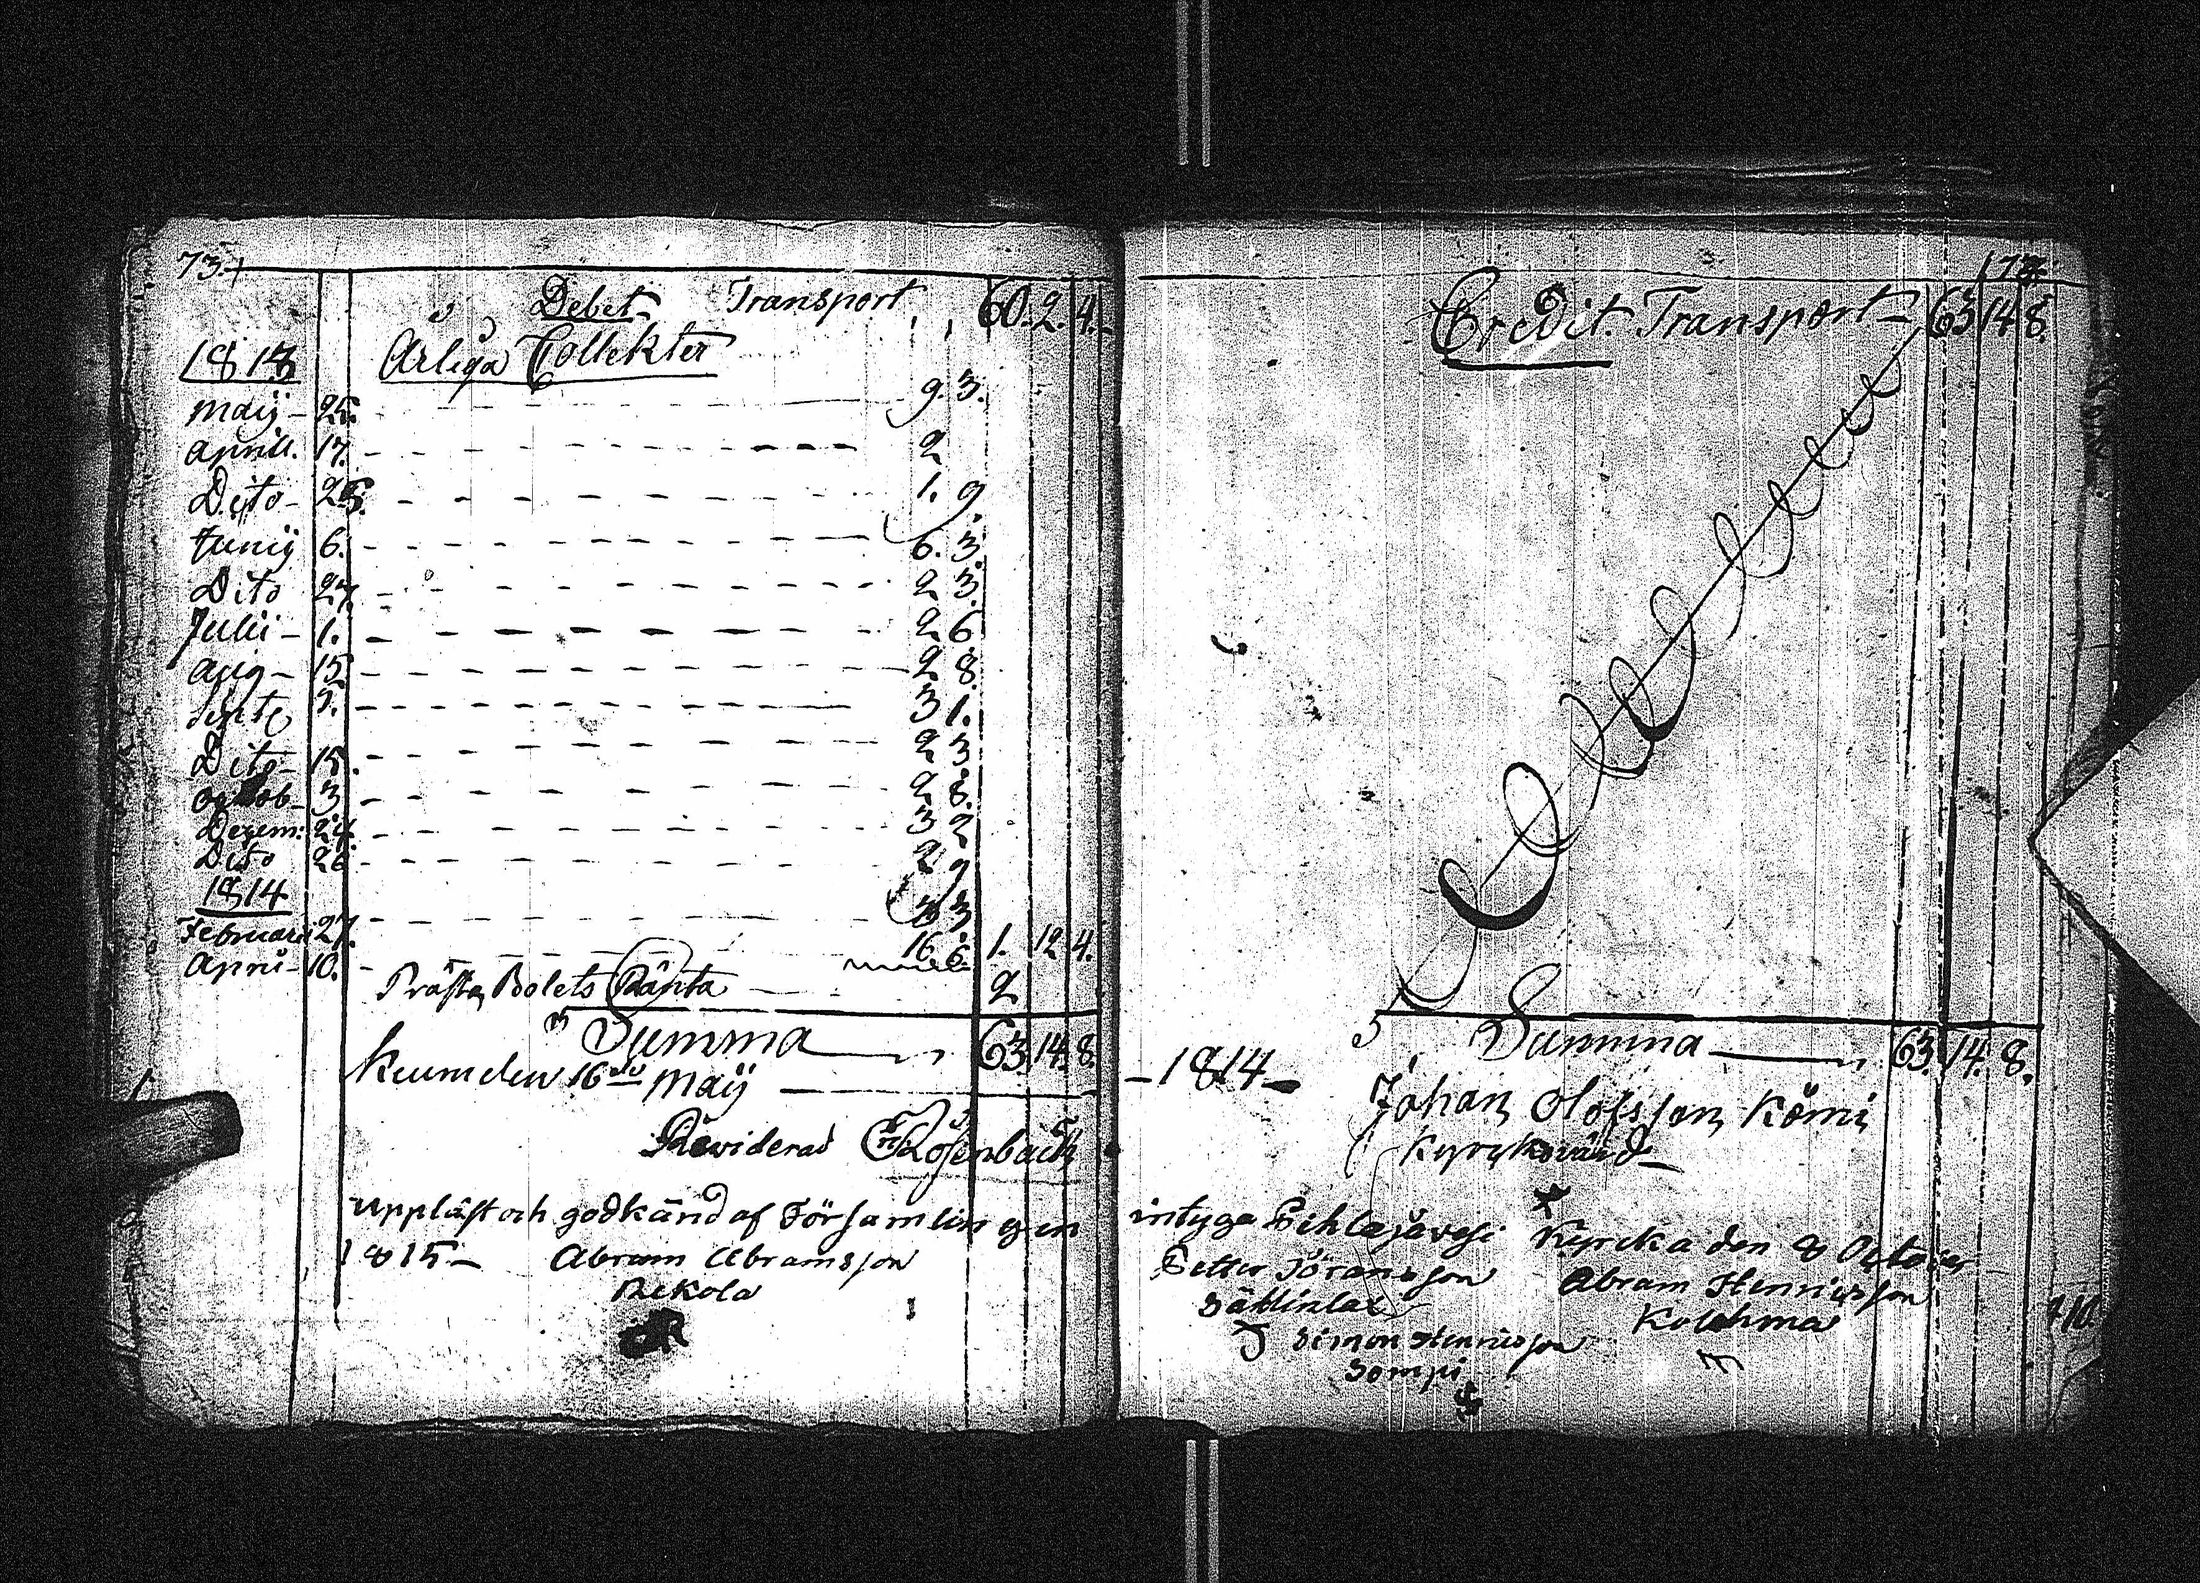 73.
Debet Transport 60. 2. 4.
1813 Årliga Collekter
Maij 25. 9. 3.
April. 17. 2
Dito 25. 1. 9.
Junij 6. 6. 3.
Dito 27. 2 3.
Julii 1. 2 6
Aug 15 2 8.
Septe 5. 3 1.
Dito 15. 2 3
Octob 3 2 8.
Dezem: 24 3 2
Dito 26 2 9
1814
Februari 27. 3 3.
April 10. 16 6. 1. 12 4.
Prästa Bolets Ränta 2
Summa 63. 14. 8.
Keum den 16de Maij
Rewiderad Rosenback
Uppläst och godkänd af Församlingen
1815 Abram Abramsson
Rekola
Credit. Transport 63 14 8.
Summa 63. 14. 8.
1814 Johan Olofsson Kömi
Kyrckovärd
intyga Pihlajavesi Kyrcka den 8 October
Petter Göransson Abram Henricsson
Kolehma
Simon Henricsson
Sompi